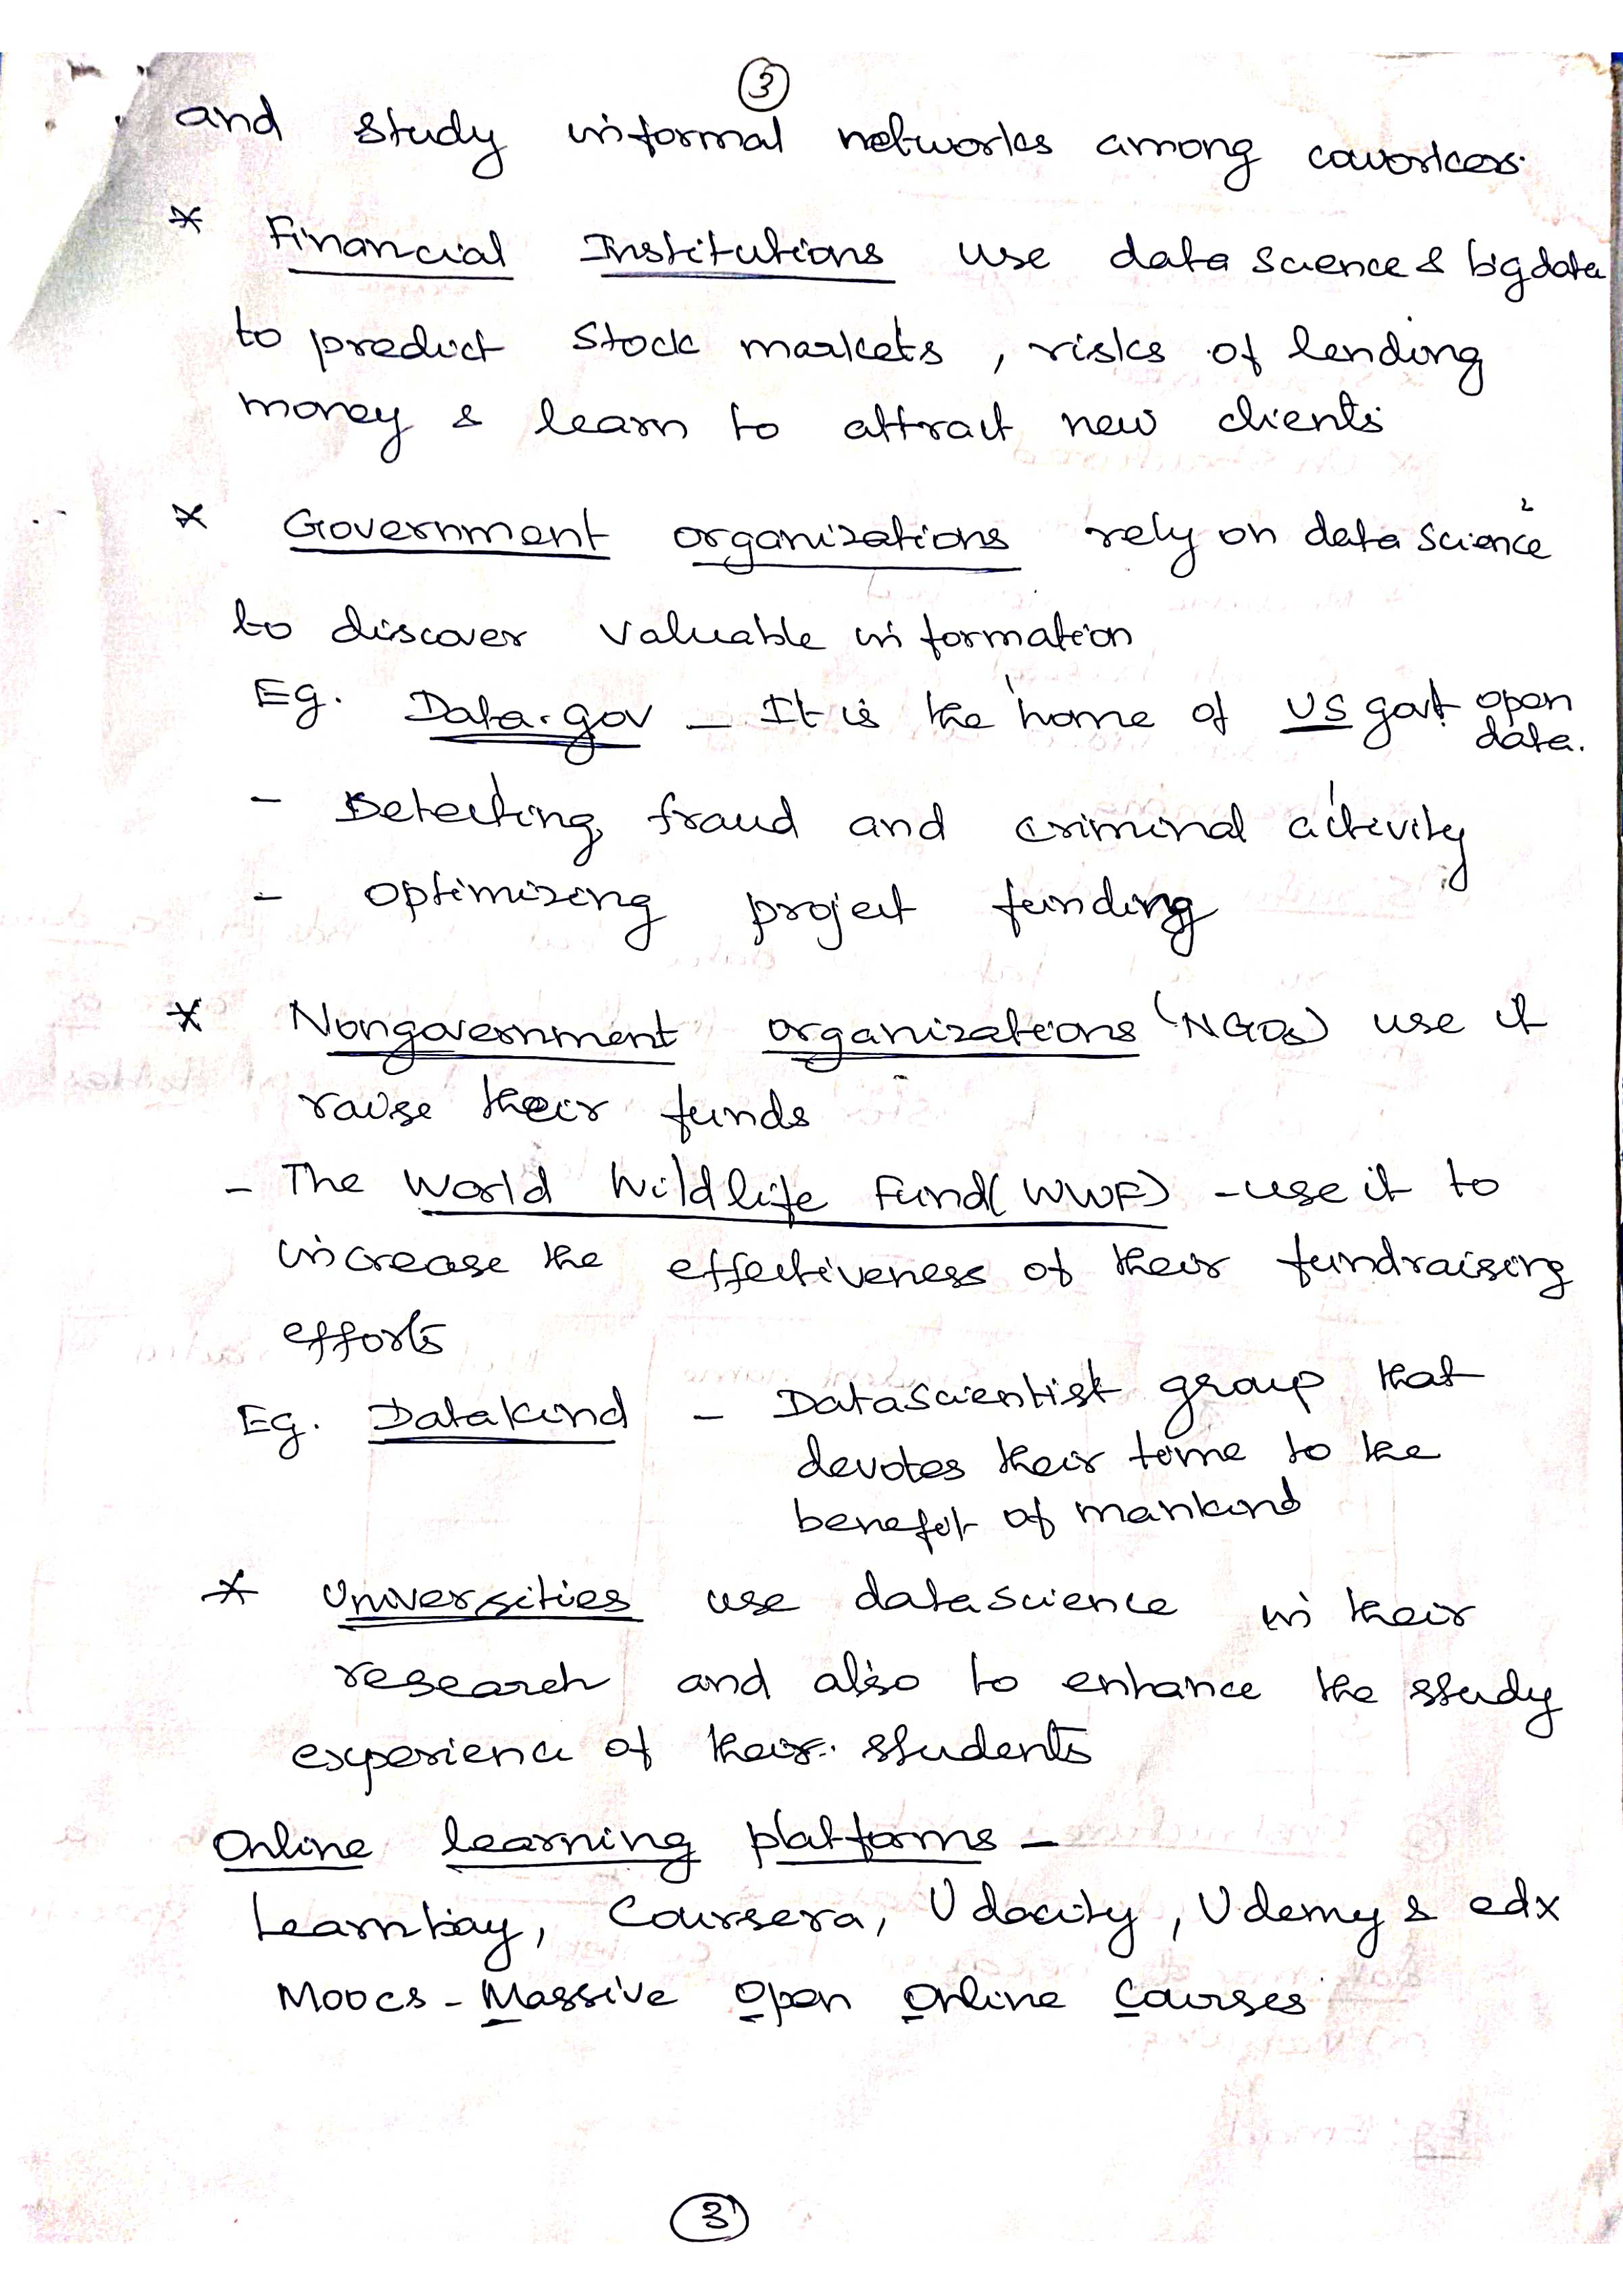 3
and study informal networks among coworkers.
* Financial Institutions use data science & bigdata
to predict stock markets, risks of lending
money & learn to attract new clients
* Government organizations rely on data science
to discover valuable information
Eg. Data.gov - It is the home of US govt open data.
- Detecting fraud and criminal activity
- optimizing project funding
* Nongovernment organizations (NGOs) use it
raise their funds
- The World Wildlife Fund (WWF) - use it to
increase the effectiveness of their fundraising
efforts
Eg. Datakind - Data Scientist group that
devotes their time to the
benefit of mankind
* Universities use datascience in their
research and also to enhance the study
experience of their students
Online learning platforms -
Learnbay, Coursera, Udacity, Udemy & edx
MOOCs - Massive Open Online Courses
3